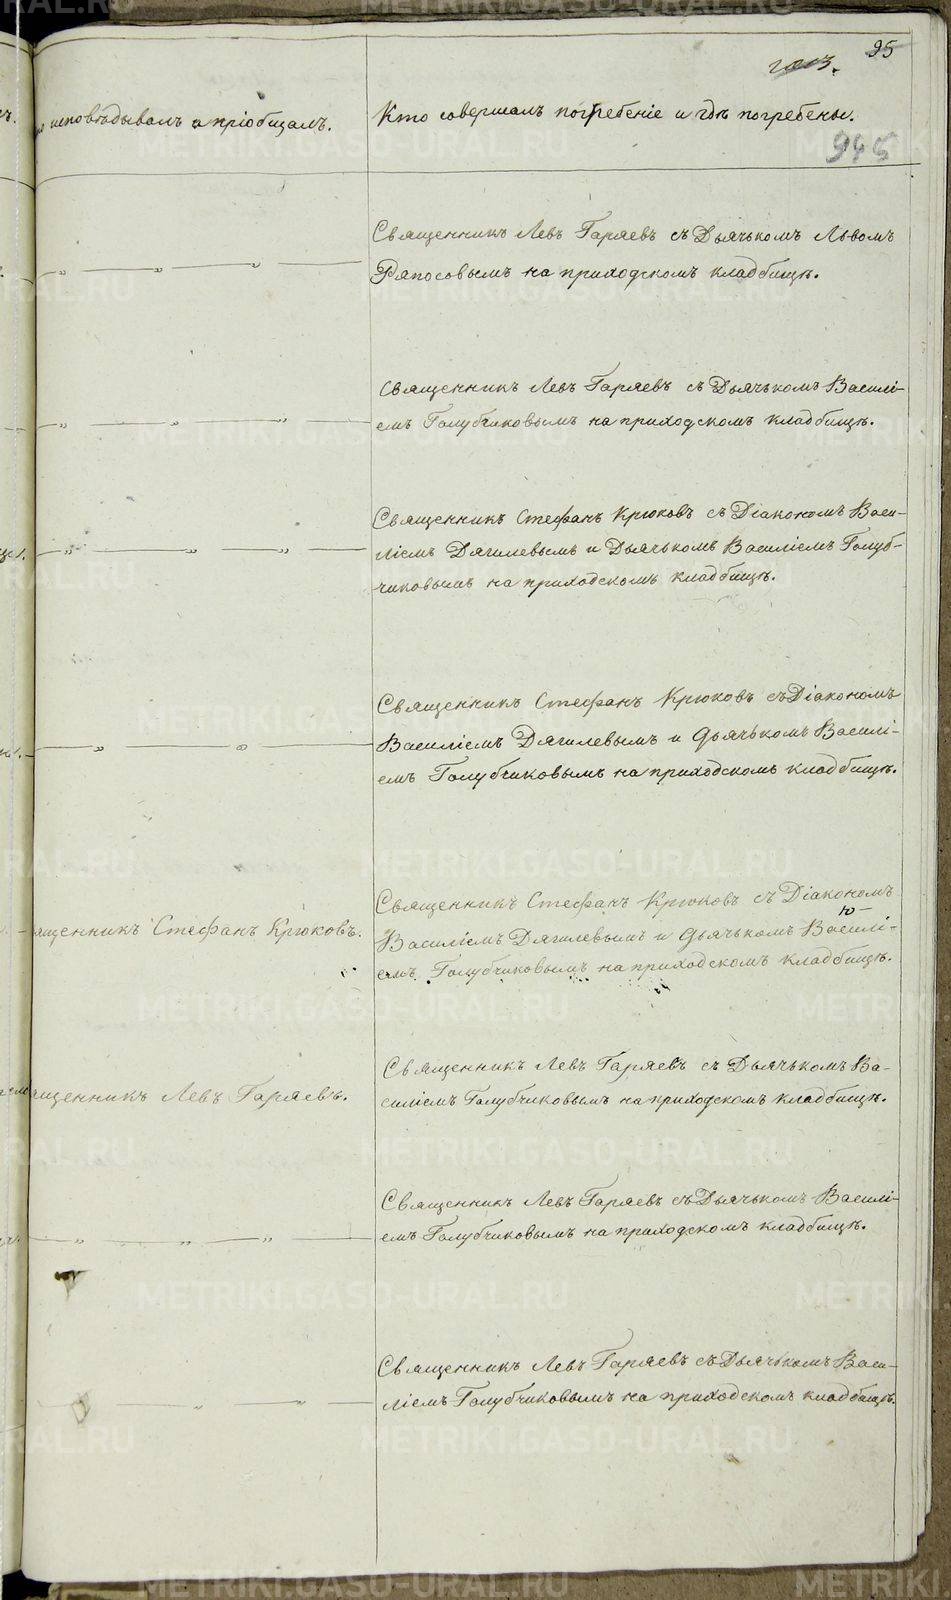 95
исповѣдывалъ и пріобщалъ.
Кто совершалъ погребеніе и гдѣ погребены.
945
Священникъ Левъ Гаряевъ съ Дьячькомъ Львомъ
Ряпосовымъ на приходскомъ кладбищѣ.
Священникъ Левъ Гаряевъ съ Дьячькомъ Василі-
емъ Голубчиковымъ на приходскомъ кладбищѣ.
Священникъ Стефанъ Крюковъ съ Діакономъ Васи-
ліемъ Дягилевымъ и Дьячькомъ Василіемъ Голуб-
чиковымъ на приходскомъ кладбищѣ.
Священникъ Стефанъ Крюковъ съ Діакономъ
Василіемъ Дягилевымъ и Дьячькомъ Василі-
емъ Голубчиковымъ на приходскомъ кладбищѣ.
ященникъ Стефанъ Крюковъ.
Священникъ Стефанъ Крюковъ съ Діакономъ
Василіемъ Дягилевымъ и Дьячькомъ Василі-
емъ Голубчиковымъ на приходскомъ кладбищѣ.
ященникъ Левъ Гаряевъ.
Священникъ Левъ Гаряевъ съ Дьячькомъ Ва-
силіемъ Голубчиковымъ на приходскомъ кладбищѣ.
Священникъ Левъ Гаряевъ съ Дьячькомъ Василі-
емъ Голубчиковымъ на приходскомъ кладбищѣ.
Священникъ Левъ Гаряевъ съ Дьячькомъ Васи-
ліемъ Голубчиковымъ на приходскомъ кладбищѣ.
METRIKI.GASO-URAL.RU